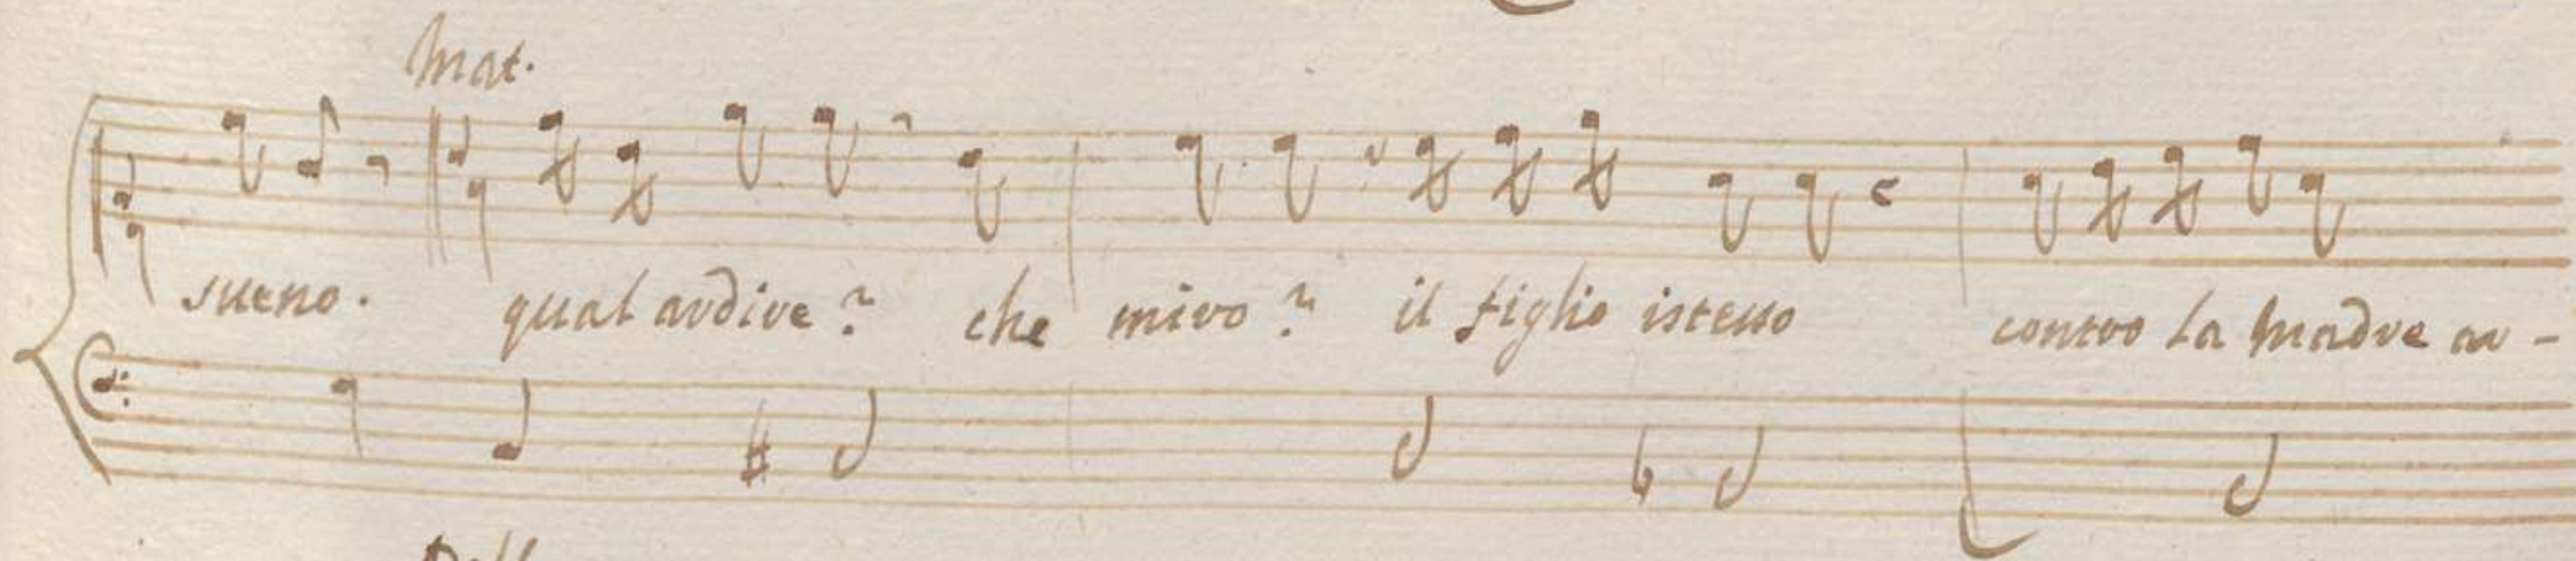 Mat.
sueno. qual ardire? che miro? il figlio istesso contro la Madre ar-